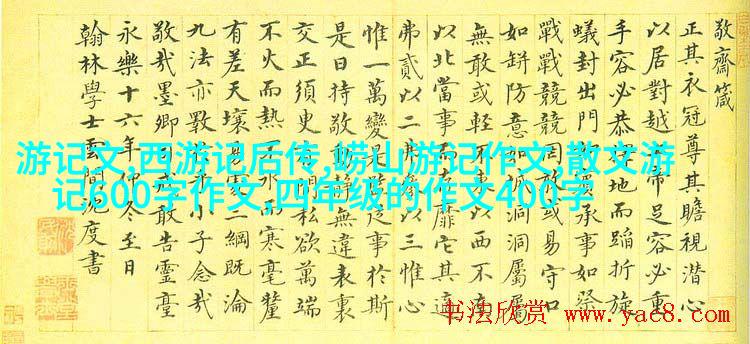 敬齋箴
正其衣冠尊其瞻視潛心
以居對越帝足容必重
手容必恭地而蹈折旋
蟻封出門賓承事如祭
戰戰兢兢敢或易守口
如缾防意如洞洞屬屬
無敢或輕不東以西不
以北當事而靡它其適
弗貳以二以三惟心
惟一萬變是從事於斯
是日持敬靜無違表裏
交正須臾私欲萬端
不火而熱不而寒毫釐
有差天壤處三綱既淪
九法亦斁小子念哉
敬哉墨卿戒敢告靈臺
永樂十六年仲冬至日
翰林學士雲間沈度書
游记文,西游记后传,崂山游记作文,散文游
记600字作文,四年级的作文400字
书法欣赏
www.yac8.com